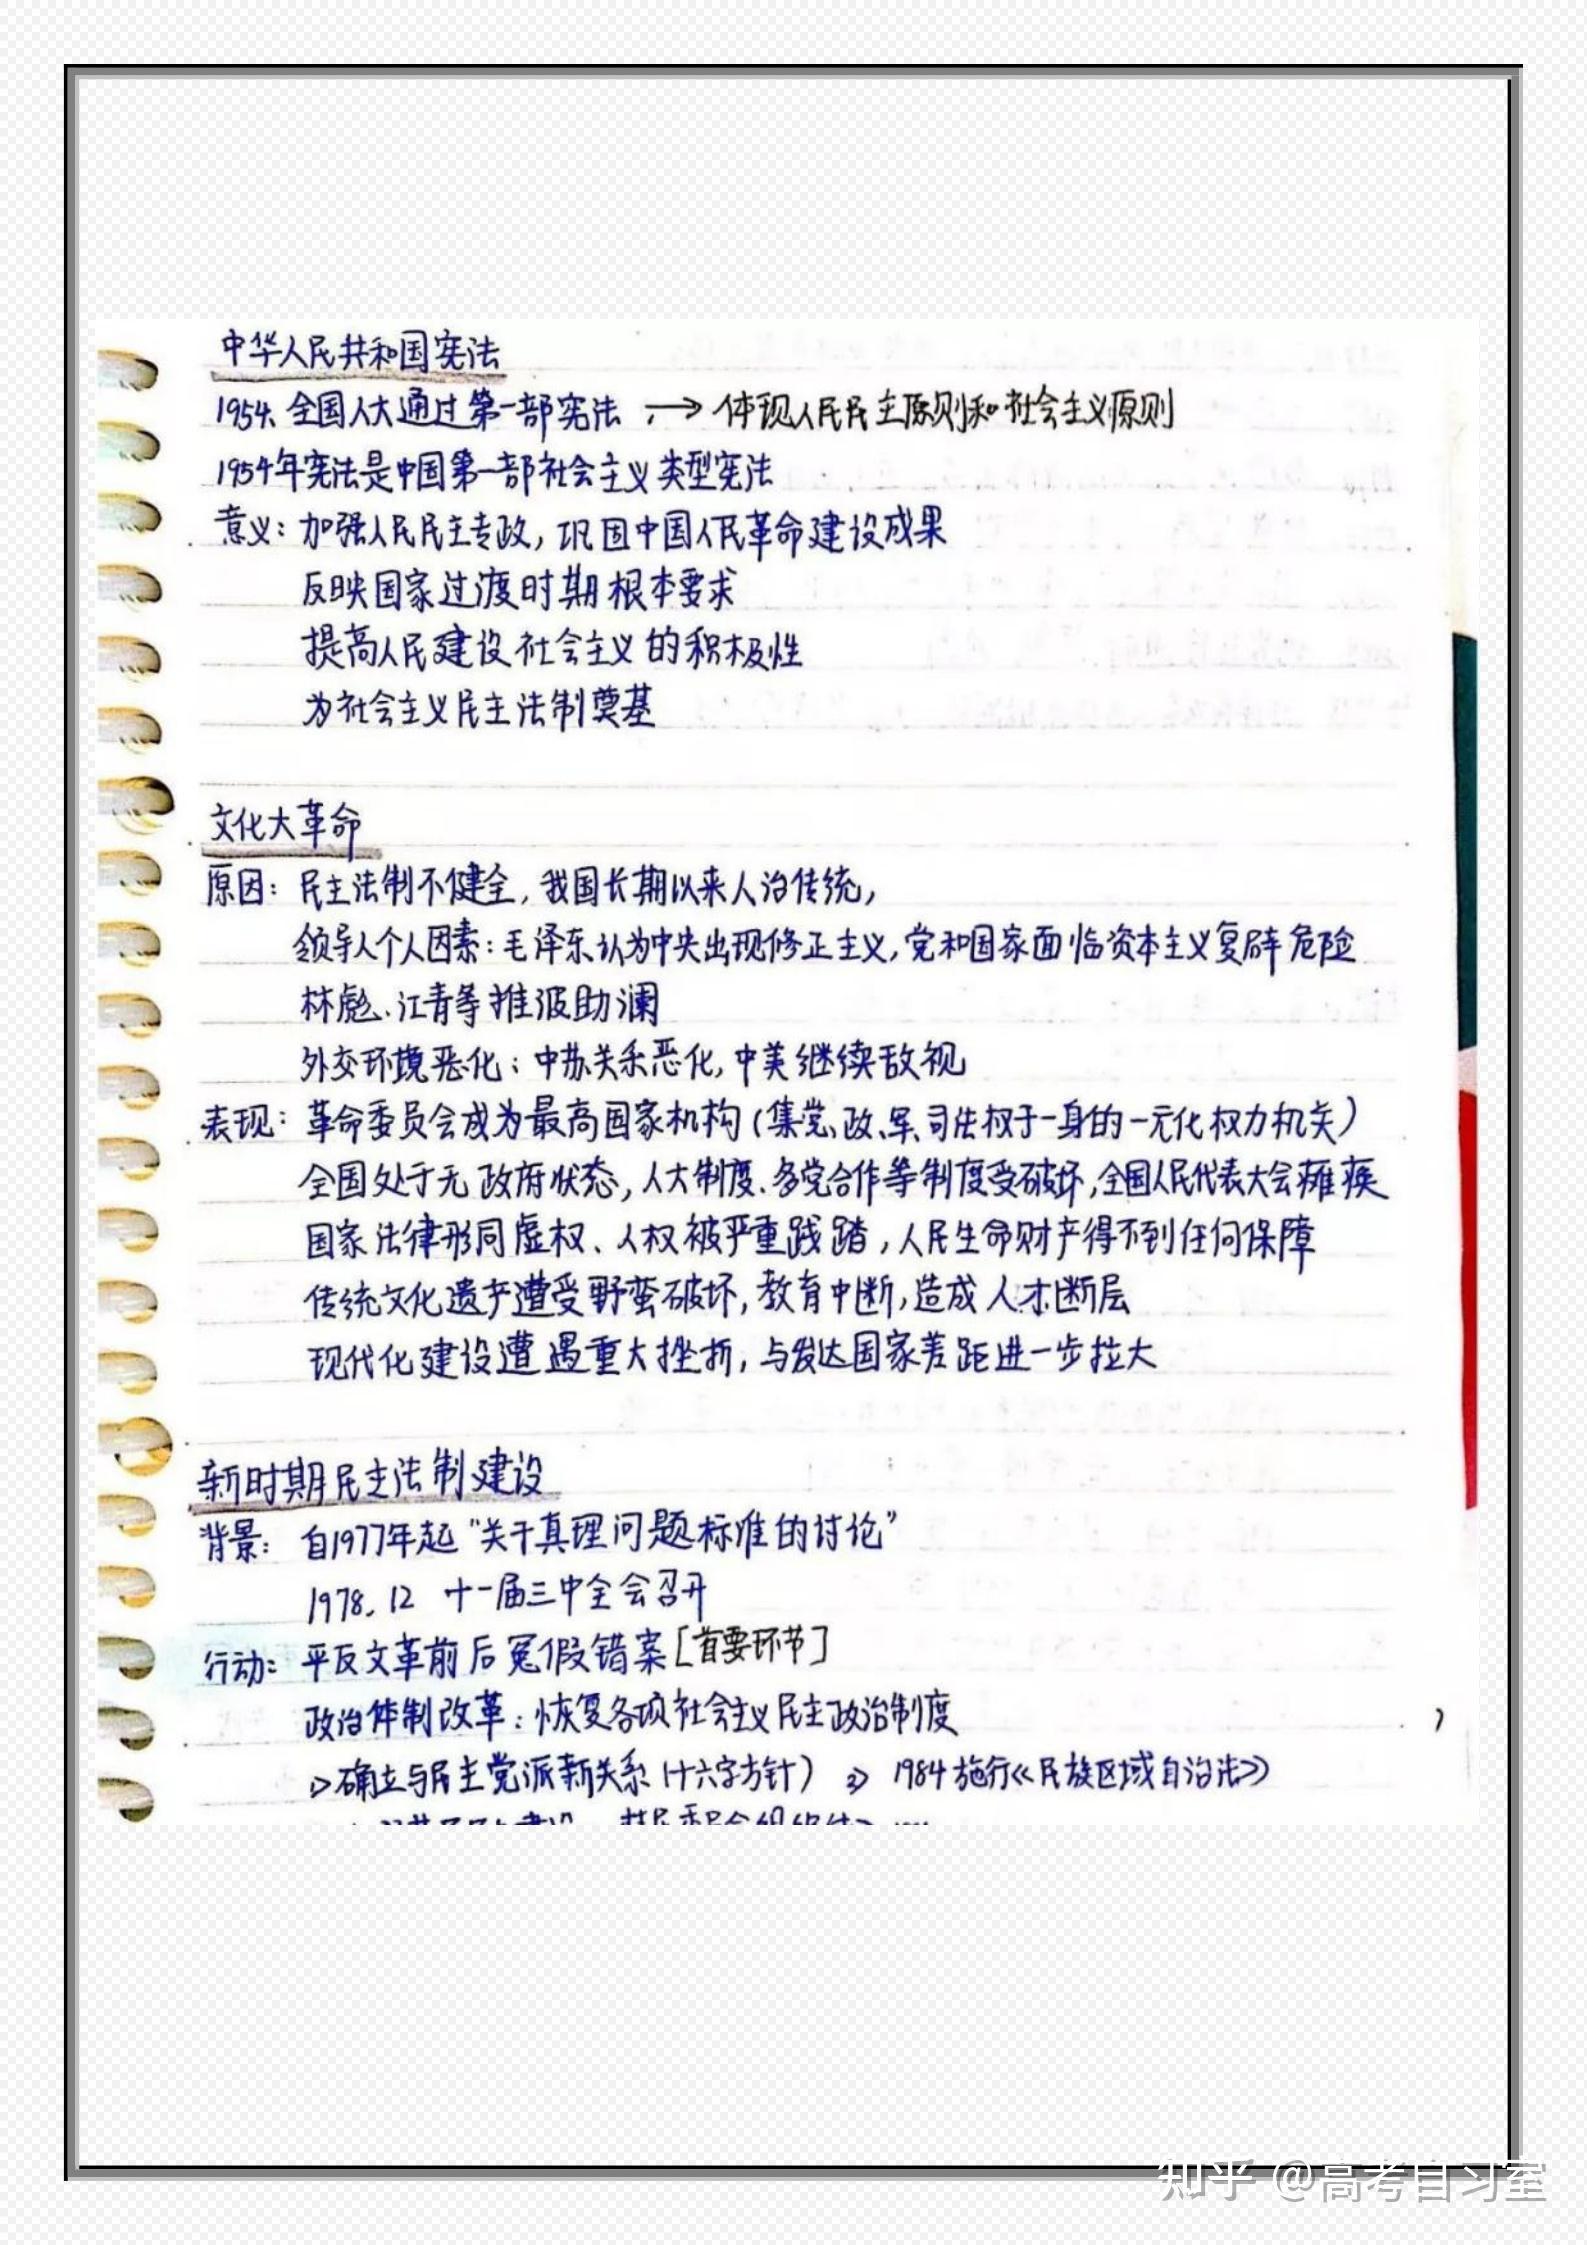 中华人民共和国宪法
1954、全国人大通过第一部宪法 → 体现人民民主原则和社会主义原则
1954年宪法是中国第一部社会主义类型宪法
意义：加强人民民主专政，巩固中国人民革命建设成果
反映国家过渡时期根本要求
提高人民建设社会主义的积极性
为社会主义民主法制奠基
文化大革命
原因：民主法制不健全，我国长期以来人治传统，
领导人个人因素：毛泽东认为中央出现修正主义，党和国家面临资本主义复辟危险
林彪、江青等推波助澜
外交环境恶化：中苏关系恶化，中美继续敌视
表现：革命委员会成为最高国家机构（集党、政、军、司法权于一身的一元化权力机关）
全国处于无政府状态，人大制度、多党合作等制度受破坏，全国人民代表大会瘫痪
国家法律形同虚权、人权被严重践踏，人民生命财产得不到任何保障
传统文化遗产遭受野蛮破坏，教育中断，造成人才断层
现代化建设遭遇重大挫折，与发达国家差距进一步拉大
新时期民主法制建设
背景：自1977年起“关于真理问题标准的讨论”
1978.12 十一届三中全会召开
行动：平反文革前后冤假错案[首要环节]
政治体制改革：恢复各项社会主义民主政治制度
1>确立与民主党派新关系（十六字方针） 2> 1984施行《民族区域自治法》
知乎 @高考自习室